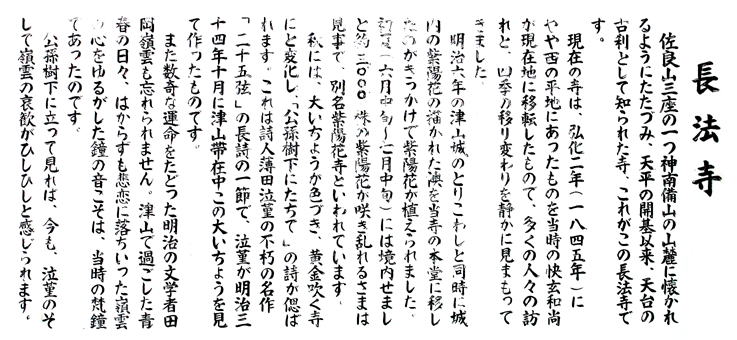 長法寺
佐良山三座の一つ神南備山の山麓に懐かれ
るようにたたづみ、天平の開基以来、天台の
古刹として知られた寺、これがこの長法寺で
す。
現在の寺は、弘化二年(一八四五年)に
やや西の平地にあったものを当時の快玄和尚
が現在地に移転したもので、多くの人々の訪
れと、四季の移り変わりを静かに見まもって
きました。
明治六年の津山城のとりこわしと同時に城
内の紫陽花の描かれた襖を当寺の本堂に移し
たのがきっかけで紫陽花が植えられました。
初夏(六月中旬〜七月中旬)には境内せまし
と約三〇〇〇株の紫陽花が咲き乱れるさまは
見事で、別名紫陽花寺といわれています。
秋には、大いちょうが色づき、黄金吹く寺
にと変化し、「公孫樹下にたちて」の詩が偲ば
れます。これは詩人薄田泣菫の不朽の名作
「二十五弦」の長詩の一節で、泣菫が明治三
十四年十月に津山帯在中この大いちょうを見
て作ったものです。
また数奇な運命をたどった明治の文学者田
岡嶺雲も忘れられません。津山で過ごした青
春の日々、はからずも悲恋に落ちいった嶺雲
の心をゆるがした鐘の音こそは、当時の梵鐘
であったのです。
公孫樹下に立って見れば、今も、泣菫のそ
して嶺雲の哀歓がひしひしと感じられます。